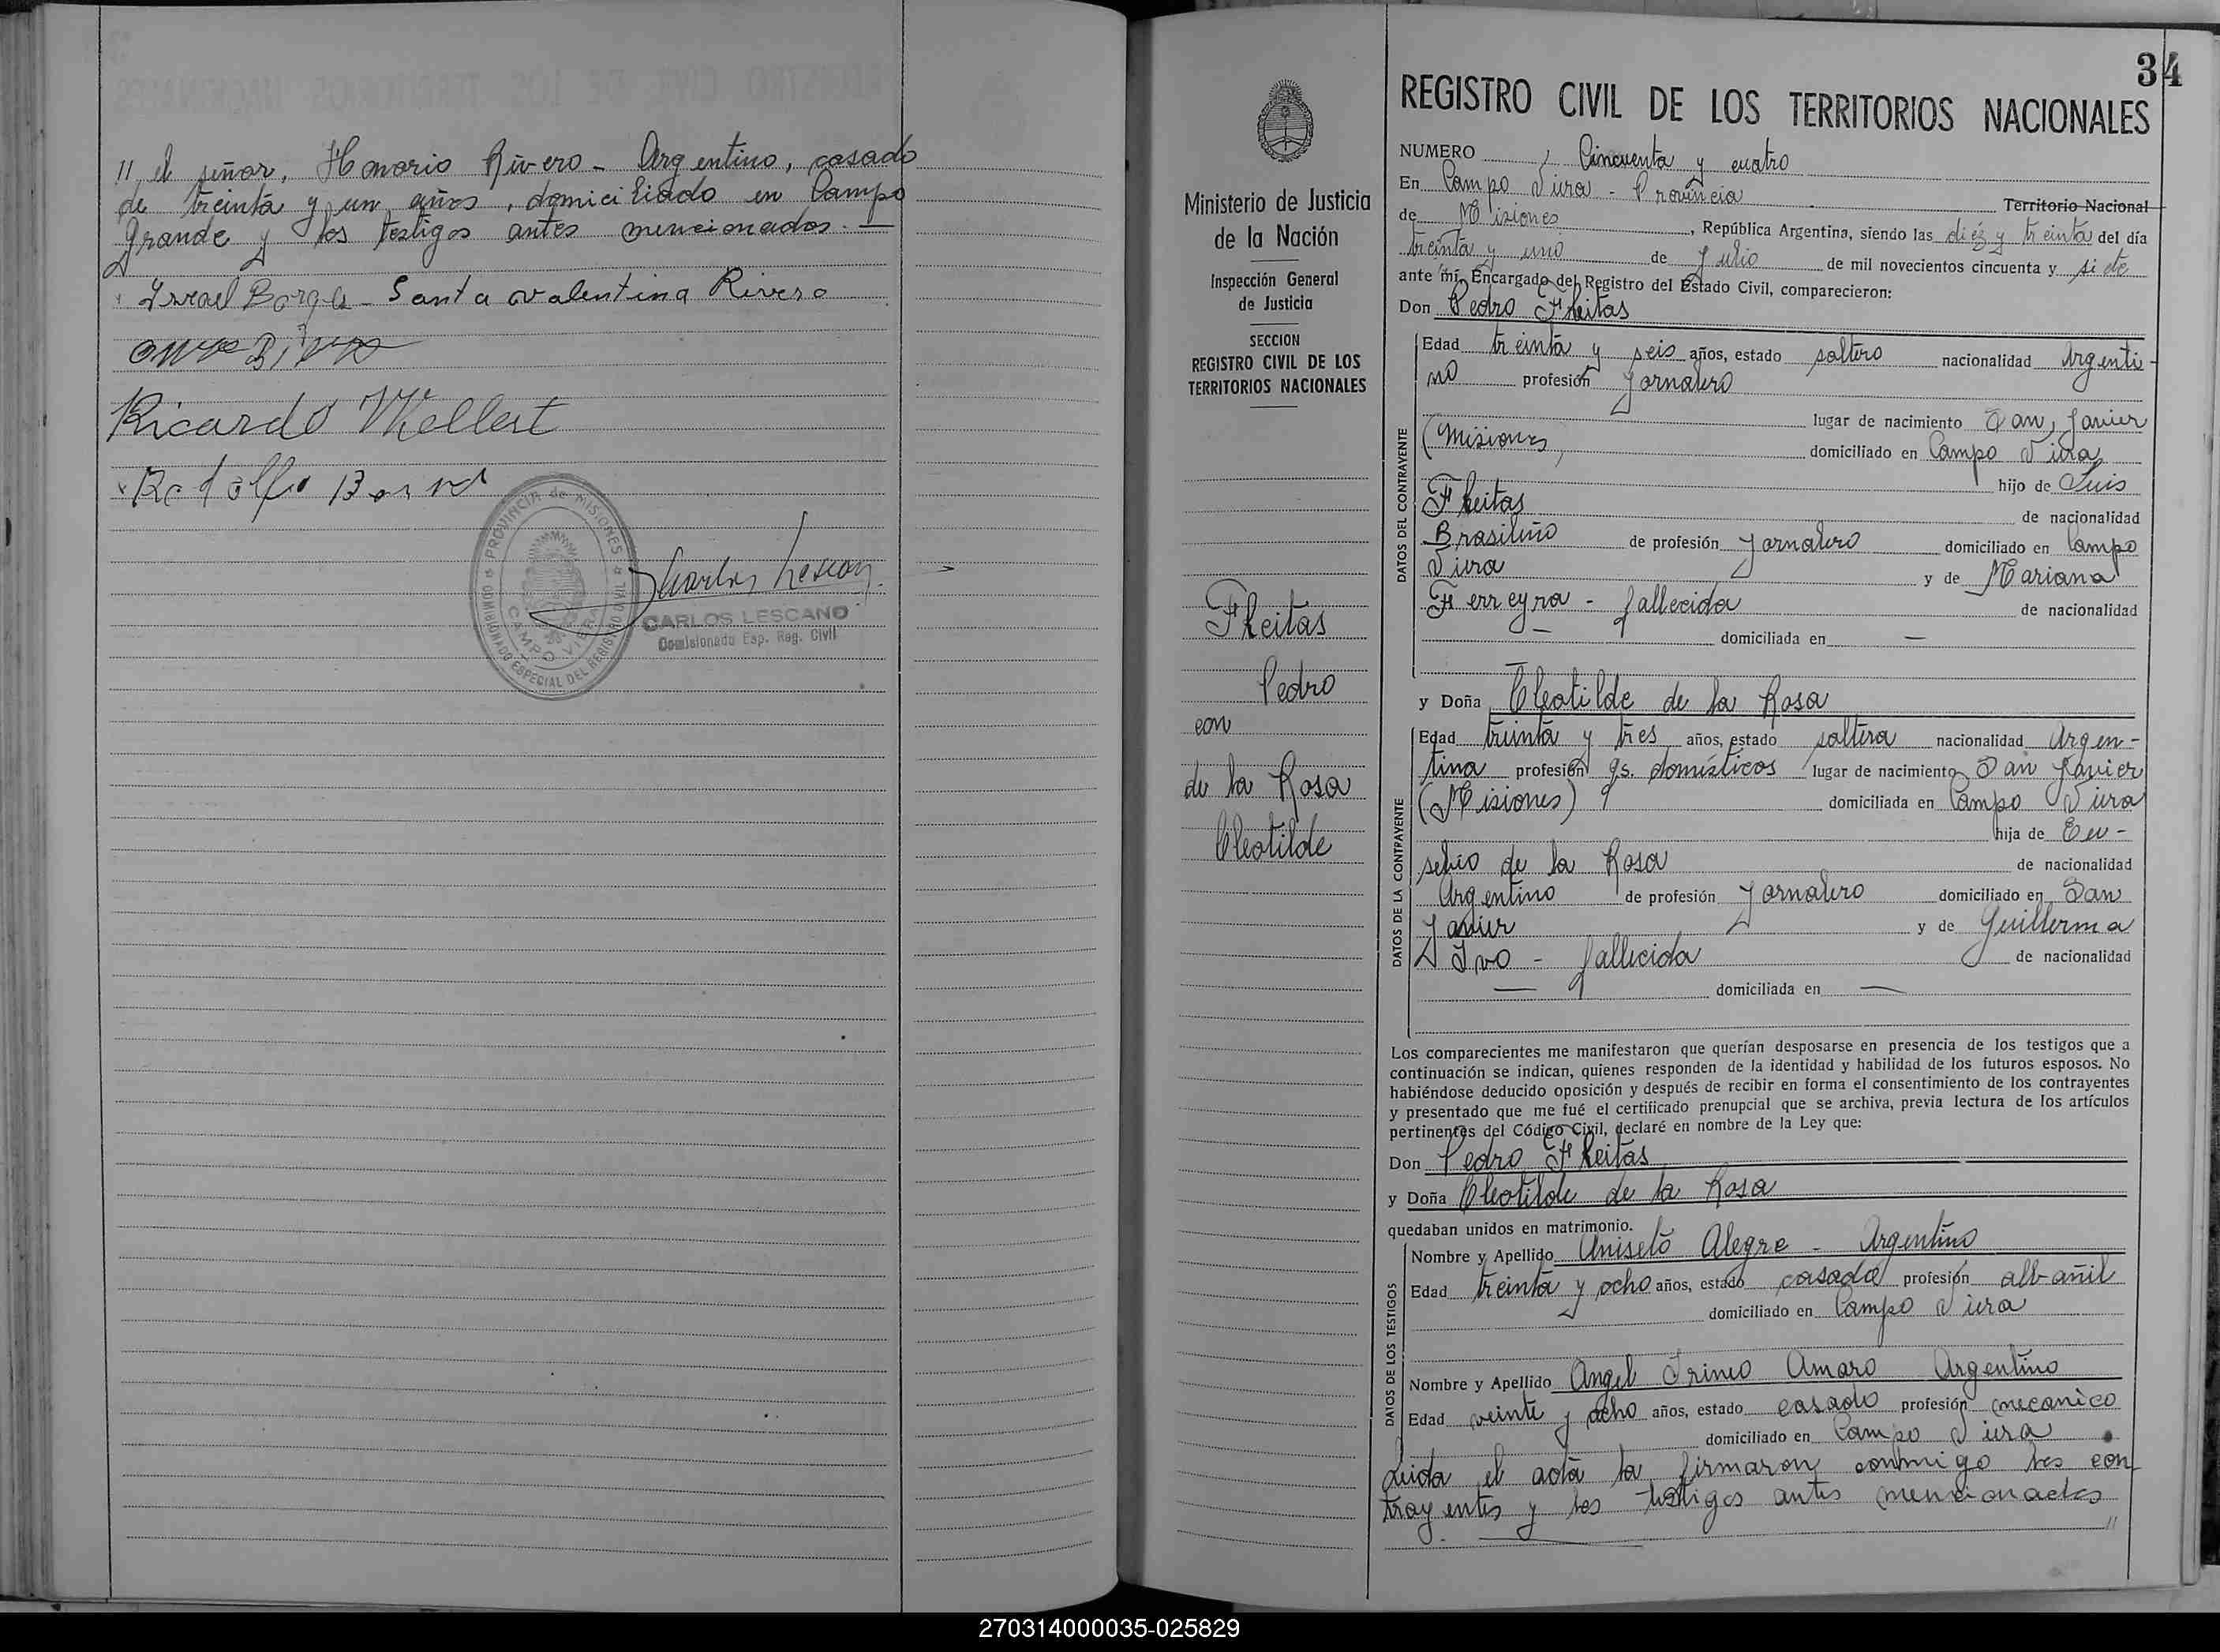 " el señor, Honorio Rivero - Argentino, casado
de treinta y un años, domiciliado en Campo
Grande y los testigos antes mencionados. —
Israel Borges - Santa valentina Rivero
Ricardo
PROVINCIA de MISIONES
COMISIONADO ESPECIAL DEL REGISTRO CIVIL
CAMPO VIERA
Carlos Lescano
CARLOS LESCANO
Comisionado Esp. Reg. Civil
Ministerio de Justicia
de la Nación
Inspección General
de Justicia
SECCION
REGISTRO CIVIL DE LOS
TERRITORIOS NACIONALES
Fleitas
Pedro
con
de la Rosa
Cleotilde
34
REGISTRO CIVIL DE LOS TERRITORIOS NACIONALES
NUMERO Cincuenta y cuatro
En Campo Viera - Provincia Territorio Nacional
de Misiones, República Argentina, siendo las diez y treinta del día
treinta y uno de Julio de mil novecientos cincuenta y siete
ante mí, Encargado del Registro del Estado Civil, comparecieron:
Don Pedro Fleitas
DATOS DEL CONTRAYENTE
Edad treinta y seis años, estado soltero nacionalidad Argenti-
no profesión Jornalero
lugar de nacimiento San Javier
(Misiones) domiciliado en Campo Viera
hijo de Luis
Fleitas de nacionalidad
Brasileño de profesión Jornalero domiciliado en Campo
Viera y de Mariana
Ferreyra - fallecida de nacionalidad
— domiciliada en —
y Doña Cleotilde de la Rosa
DATOS DE LA CONTRAYENTE
Edad treinta y tres años, estado soltera nacionalidad Argen-
tina profesión qs. domésticos lugar de nacimiento San Javier
(Misiones) domiciliada en Campo Viera
hija de Eu-
sebio de la Rosa de nacionalidad
Argentino de profesión Jornalero domiciliado en San
Javier y de Guillerma
Ivo - fallecida de nacionalidad
— domiciliada en —
Los comparecientes me manifestaron que querían desposarse en presencia de los testigos que a
continuación se indican, quienes responden de la identidad y habilidad de los futuros esposos. No
habiéndose deducido oposición y después de recibir en forma el consentimiento de los contrayentes
y presentado que me fué el certificado prenupcial que se archiva, previa lectura de los artículos
pertinentes del Código Civil, declaré en nombre de la Ley que:
Don Pedro Fleitas
y Doña Cleotilde de la Rosa
quedaban unidos en matrimonio.
DATOS DE LOS TESTIGOS
Nombre y Apellido Aniseto Alegre - Argentino
Edad treinta y ocho años, estado casado profesión albañil
domiciliado en Campo Viera
Nombre y Apellido Angel Irineo Amaro Argentino
Edad veinte y ocho años, estado casado profesión mecanico
domiciliado en Campo Viera
Leida el acta la firmaron conmigo los con
trayentes y los testigos antes mencionados
"
270314000035-025829